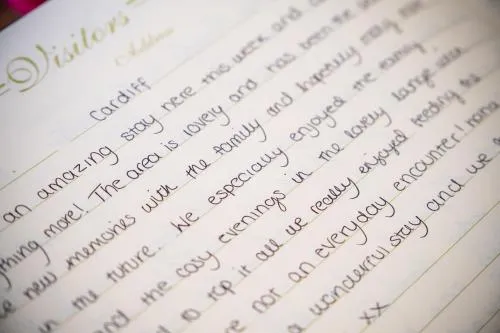 Visitors
Address
Cardiff
an amazing stay here this week and
thing more! The area is lovely and has been the
new memories with the family and hopefully many more
in the future. We especially enjoyed the
and the cosy evenings in the lovely large
to top it all we really enjoyed feeding the
not an everyday encounter!
a wonderful stay and we
xx